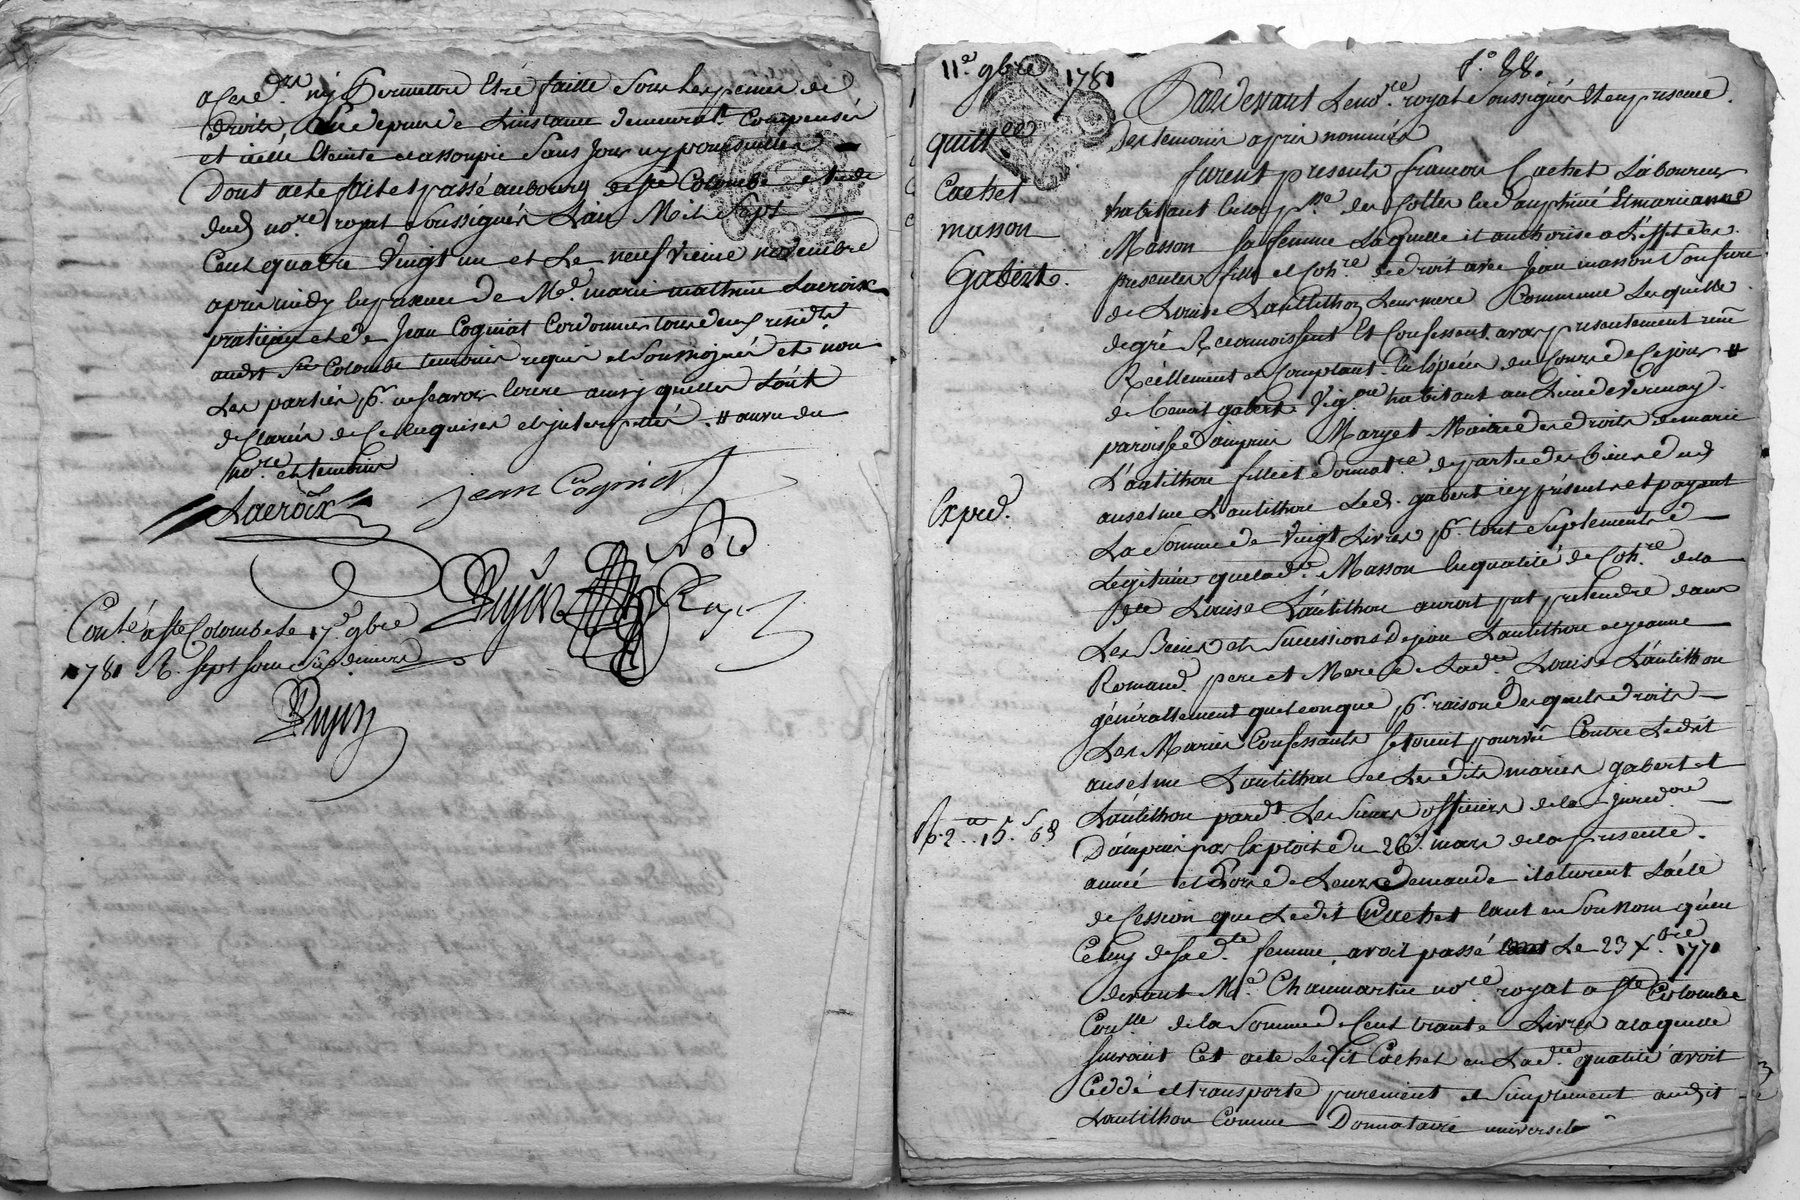 a ser d.re ny permettre Etre faitte Sous les peines de
droits, Au depens de L'instance demeurat. Compensés
et icelle Eteinte et assoupie Sans Jour ny poursuittes
Dont acte fait et passé au bourg de ste Colombe etude
dud no.re royal Soussigné Lan Mil Sept
Cent quatre Vingt un et Le neufvieme novembre
apres midy en presence de Me. marie mathieu Lacroix
praticien et de Jean Cogniat Cordonnier tous deux resid.ts
audt Ste Colombe temoins requis et Soussignés et non
Les parties pr. ne scavoir ecrire ainsy quelles L'ont
declarés de Ce enquises et interpellés. # au vu du
no.re et temoins
Lacroix
jean Cogniat
No.re
Dujon
Roy.
Conté a ste Colombe le 17e 9bre
1781 R. sept sous six deniers
Dujon
11e 9bre 1781
quitt.ce
Cachet
masson
Gabert.
Exped.
R. 2.tt 15.s 6d
f.o 88.
Pardevant Le no.re royal Soussigné Et en presence.
des temoins apres nommés
furent presents francois Cachet Laboureur
habitant en la p.sse des Cottes en dauphiné Et marianne
Masson Sa femme Laquelle il authorise a L'effet des
presentes fille et Coh.re de droit avec Jean masson Son frere
de Louise Lautilhon Leur mere Comme Lesquelle
de gré Reconnoissent Et Confessent avoir presentement reçu
Reellement et Comptant En Espèces du Cours de Ce jour #
de benoit gabert Vig.on habitant au Lieu de Vernay
paroisse d'ampuis Mary et Maitre des droits de marie
Lautilhon fille et donnat.re de partie des biens dud
anselme Lautilhon Led. gabert icy présent et payant
La Somme de Vingt Livres pr. tout Suplement de
Legitime que lad.te Masson En qualité de Coh.re de la
d.te Louise Lautilhon auroit put pretendre dans
Les Biens et Successions de jean Lautilhon et jeanne
Romand pere et Mere de Lad.te Louise Lautilhon
généralement quelconque pr. raison desquels droits
Les Mariés Confessants Setoient pourvu Contre Ledit
anselme Lautilhon et Lesdits mariés gabert et
Lautilhon pardt Les Sieurs officiers de la jured.on
D'ampuis par Exploit du 26e mars de la presente
année et Lors de Leurs demande il eturent L'acte
de Cession que Ledit Cachet tant en Son Nom qu'en
Celuy de Sad.te femme avoit passé Le 23 Xbre 1771
devant Me. Chaumartin no.re royal a ste Colombe
de la Somme de Cent trante Livres a laquelle
Suivant Cet acte Ledit Cachet en Lad.te qualité avoit
Ceddé et transporté purement et Simplement audit
Lautilhon Comme Donnataire universel